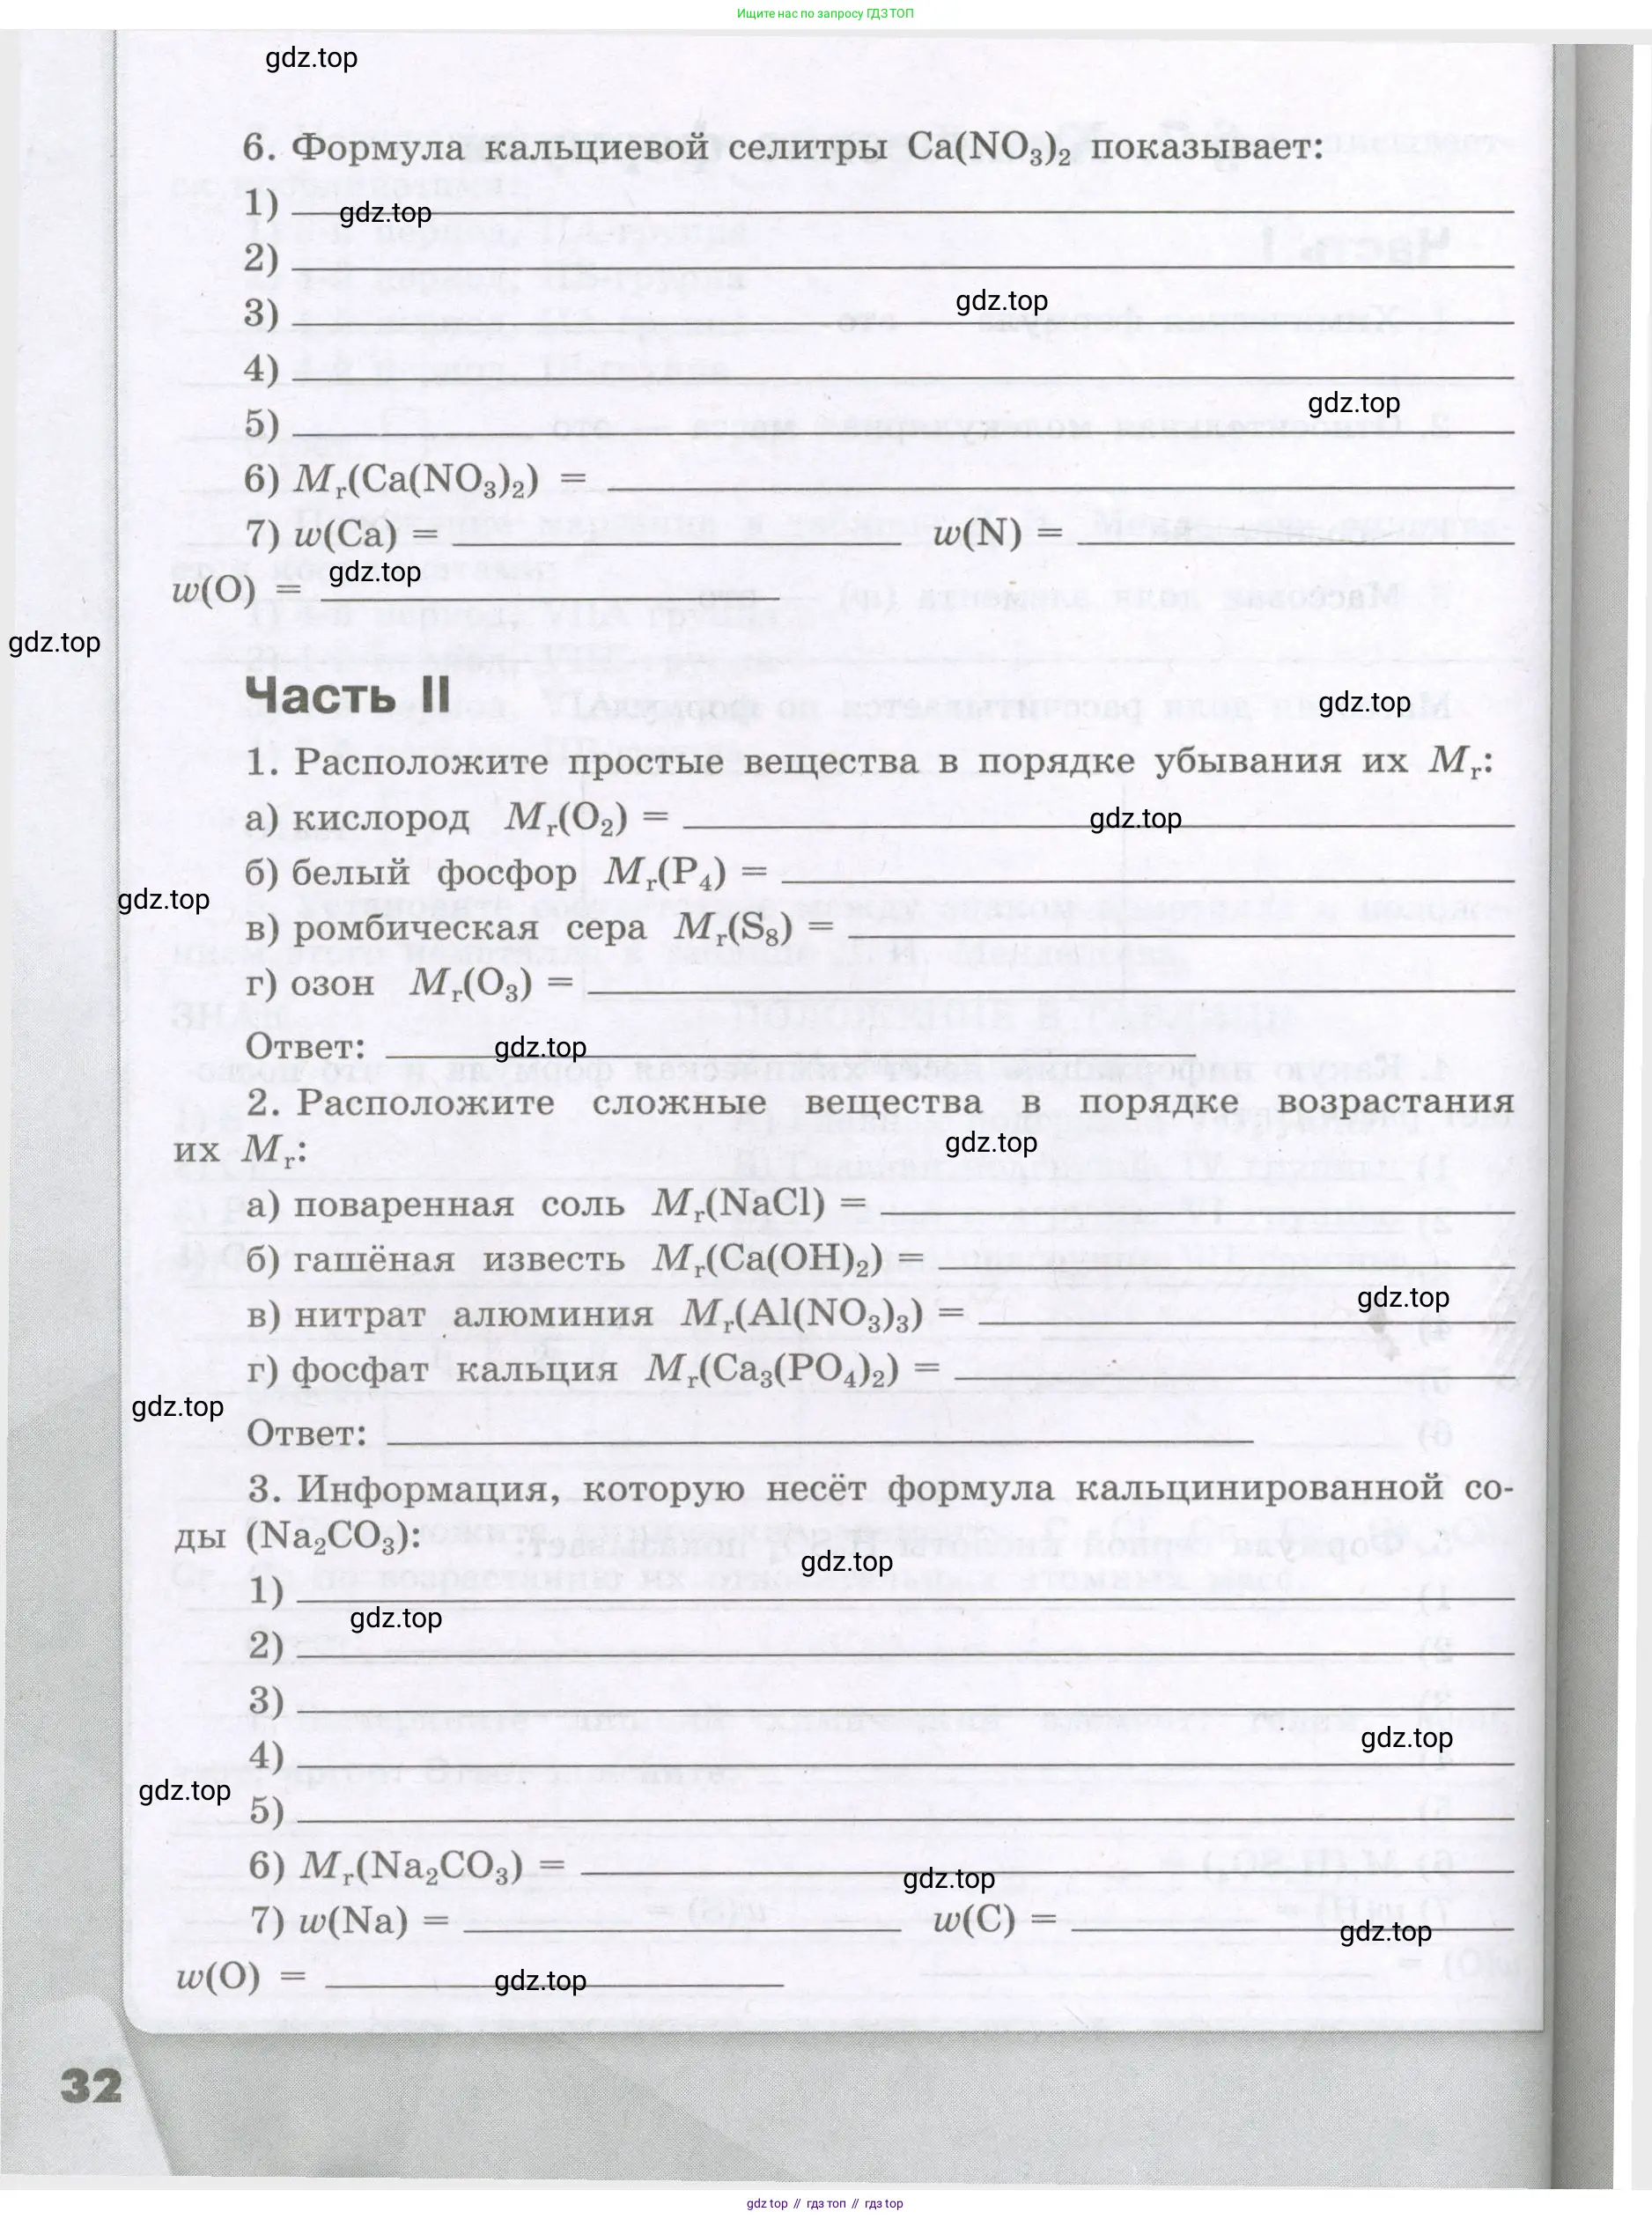 Ищите нас по запросу ГДЗ ТОП
gdz.top
6. Формула кальциевой селитры Ca(NO₃)₂ показывает:
1) gdz.top
2)
gdz.top
3)
4)
gdz.top
5)
6) Mᵣ(Ca(NO₃)₂) =
7) w(Ca) = w(N) =
gdz.top
w(O) =
gdz.top
Часть II
gdz.top
1. Расположите простые вещества в порядке убывания их Mᵣ:
а) кислород Mᵣ(O₂) = gdz.top
б) белый фосфор Mᵣ(P₄) =
gdz.top
в) ромбическая сера Mᵣ(S₈) =
г) озон Mᵣ(O₃) =
Ответ: gdz.top
2. Расположите сложные вещества в порядке возрастания
их Mᵣ: gdz.top
а) поваренная соль Mᵣ(NaCl) =
б) гашёная известь Mᵣ(Ca(OH)₂) =
gdz.top
в) нитрат алюминия Mᵣ(Al(NO₃)₃) =
г) фосфат кальция Mᵣ(Ca₃(PO₄)₂) =
gdz.top
Ответ:
3. Информация, которую несёт формула кальцинированной со-
ды (Na₂CO₃):
gdz.top
1)
gdz.top
2)
3)
gdz.top
4)
gdz.top
5)
6) Mᵣ(Na₂CO₃) = gdz.top
7) w(Na) = w(C) = gdz.top
w(O) = gdz.top
32
gdz top // гдз топ // гдз top